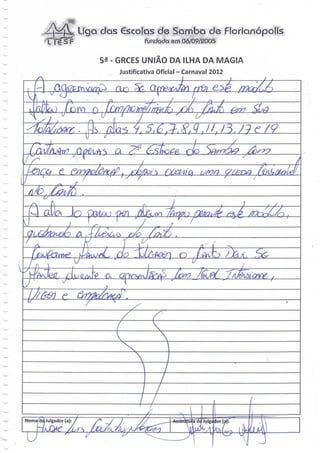 Liga das Escolas de Samba de Florianópolis
LIESF
fundada em 06/09/2005
5ª - GRCES UNIÃO DA ILHA DA MAGIA
Justificativa Oficial – Carnaval 2012
A agremiação ao se apresentar por este modulo
faltou com o comprometimento do canto em sua
totalidade. As alas 4, 5, 6, 7, 8, 9, 11, 13, 17 e 19
cantavam apenas a 2ª estrofe do samba com
força e empolgação, depois ocorria uma queda
no canto.
A ala 10 parou por algum tempo perante este módulo,
quebrando a fluência do canto.
Conforme manual do julgador o canto deve se
manter durante a apresentação com igual
vigor e empolgação.
Nome do Julgador (a):
Assinatura do Julgador (a):